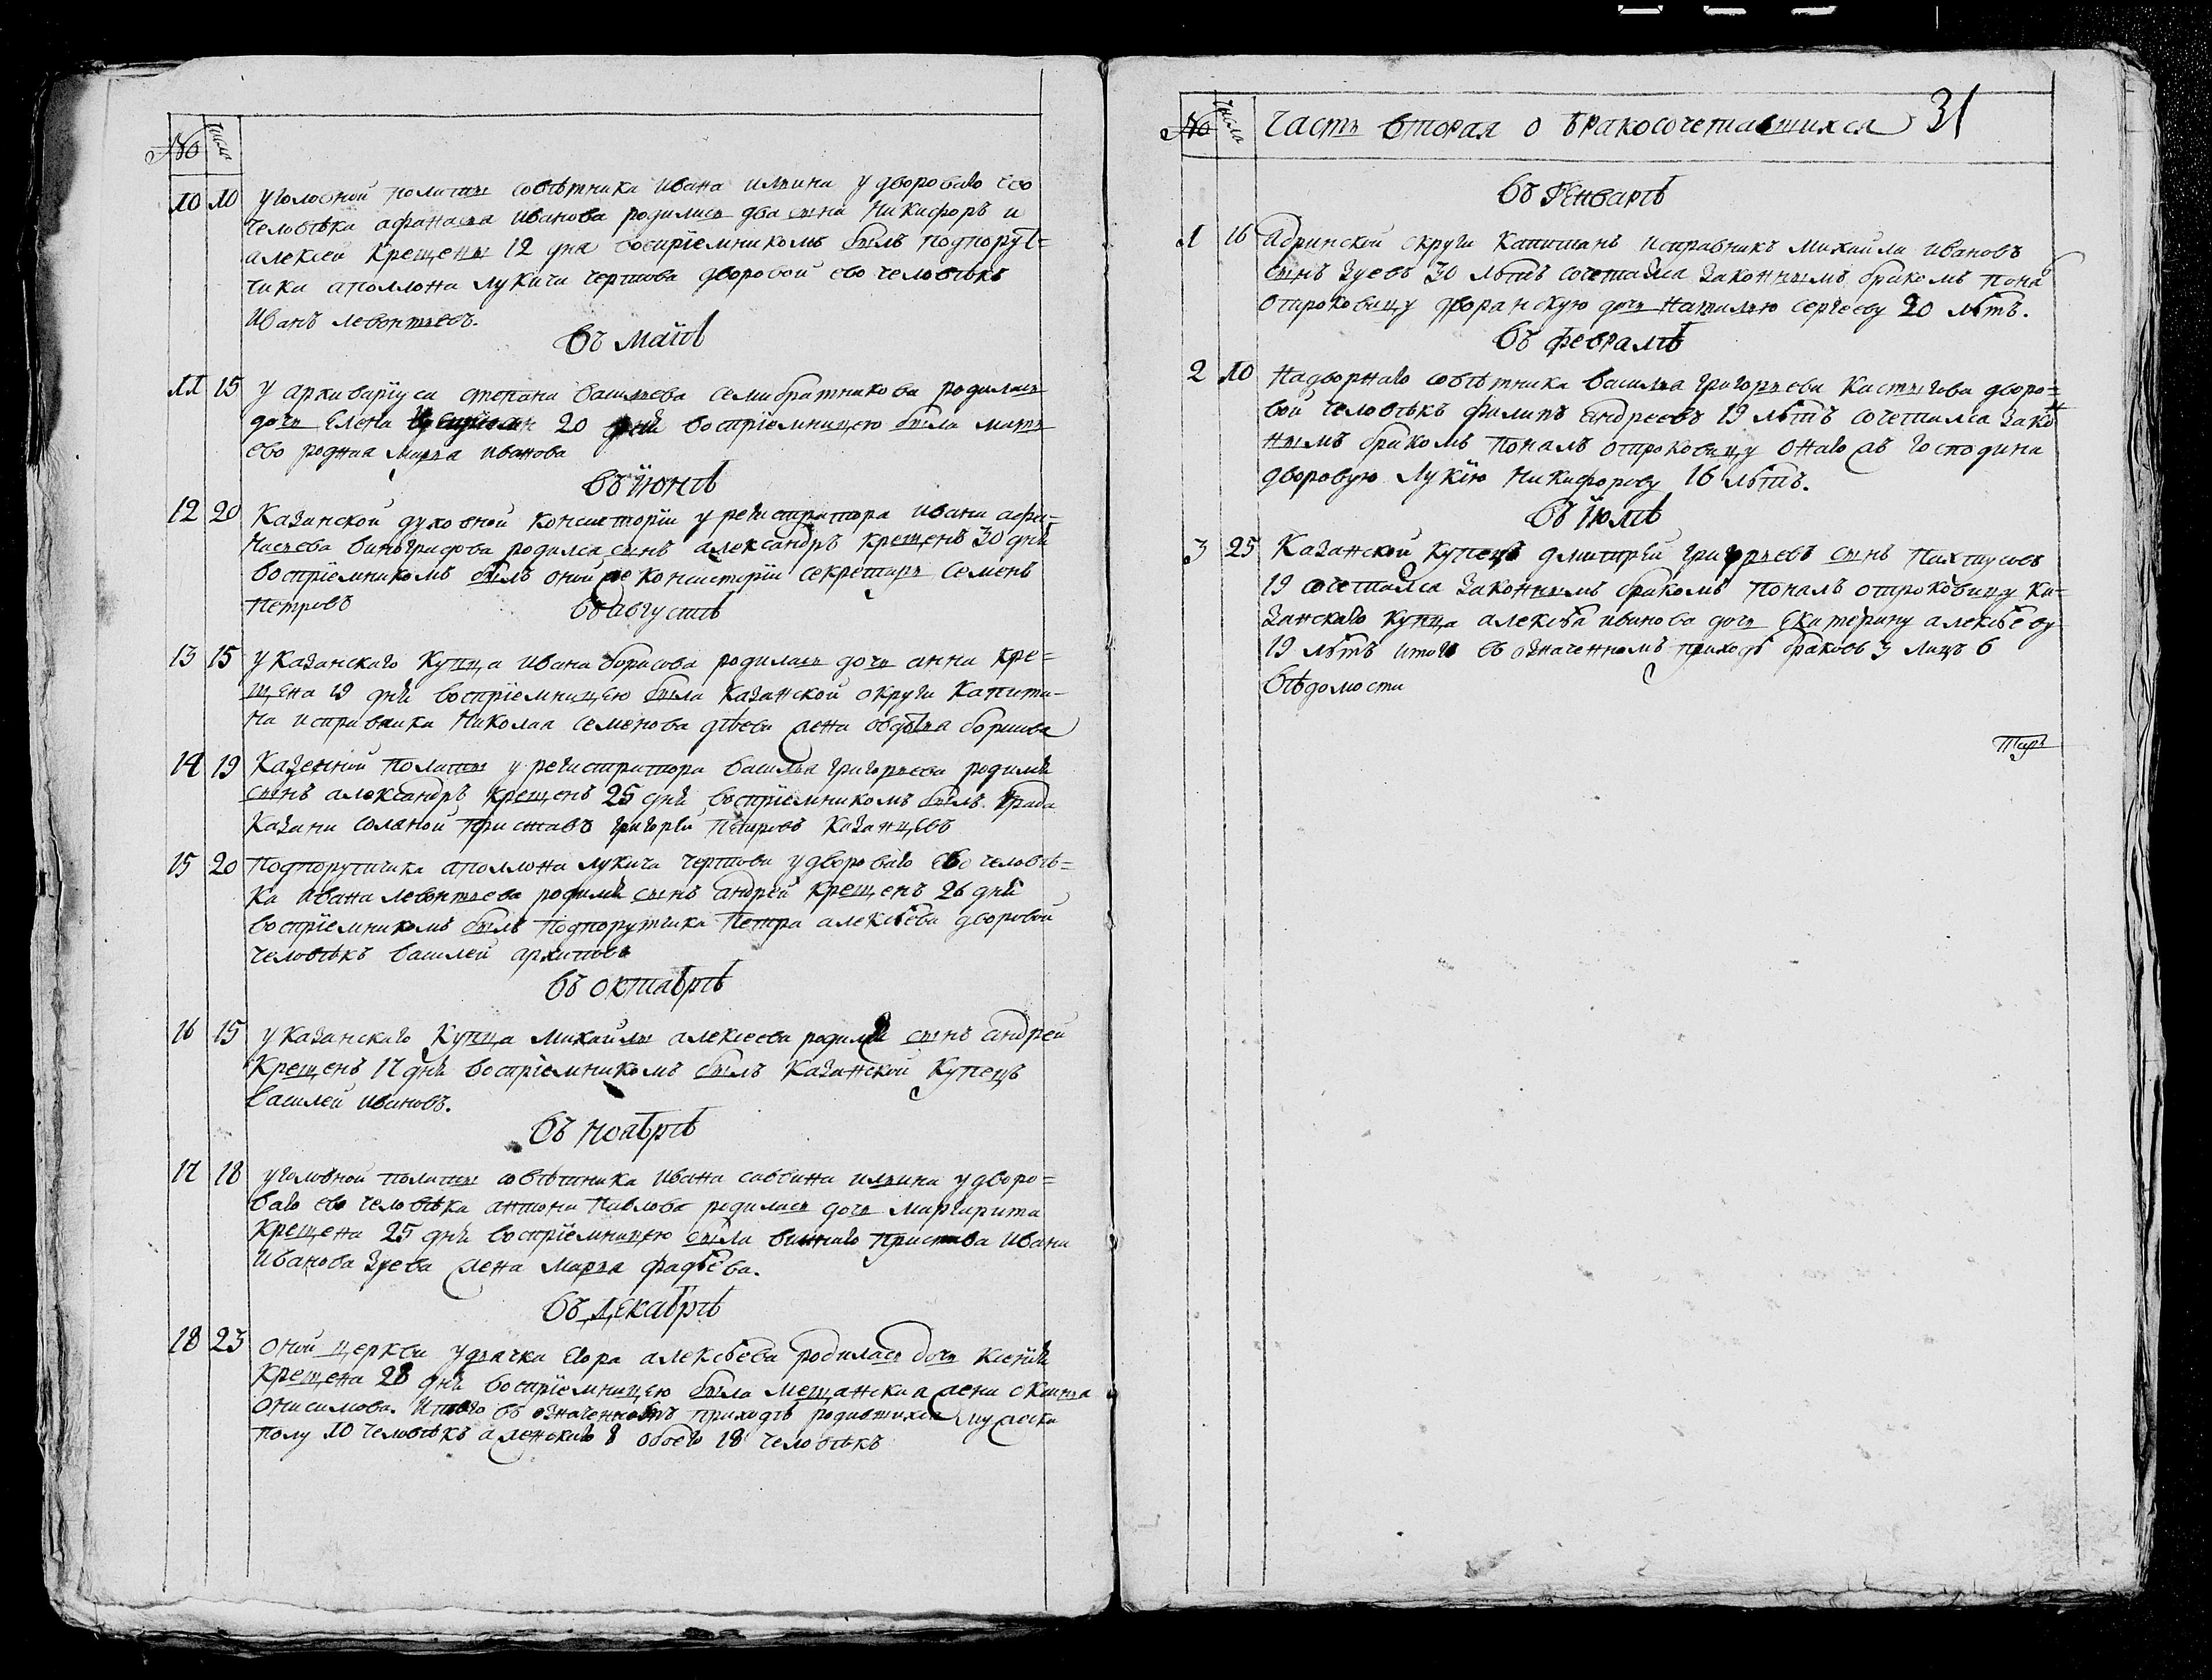 № Числа
10 10 уголовной полаты совѣтника ивана ильина у дворового ево
человѣка афанасья иванова родились два сына Никифоръ и
алексей крещены 12 дня воспріемникомъ былъ подпорут-
чика аполлона лукича чертова дворовой ево человѣкъ
Иванъ левонтьевъ.
въ маїѣ
11 15 у архиваріуса степана васильева семибратникова родилась
дочь Елена 20 дня воспріемницею была мать
ево родная марья иванова
въ їюнѣ
12 20 Казанской духовной консисторіи у регистратора ивана афа-
насьева виноградова родился сынъ александръ крещенъ 30 дня
воспріемникомъ былъ оной же консисторіи секретарь Семенъ
Петровъ
въ августѣ
13 15 у казанскаго купца ивана борисова родилась дочь анна кре-
щена 19 дня воспріемницею была казанской округи капита-
на исправника Николая семенова жена авдотья борисова
14 19 Казенной полаты у регистратора василья григорьева родился
сынъ александръ крещенъ 25 дня воспріемникомъ былъ града
казани соляной приставъ григорей петровъ казанцевъ
15 20 Подпорутчика аполлона лукича чертова у дворового ево человѣ=
ка ивана левонтьева родился сынъ андрей крещенъ 26 дня
воспріемникомъ былъ подпорутчика Петра алексѣева дворовой
человѣкъ василей архиповъ
въ октябрѣ
16 15 у казанскаго купца михайлы алексеева родился сынъ андрей
крещенъ 17 дня воспріемникомъ былъ казанской купецъ
василей ивановъ.
въ ноябрѣ
17 18 уголовной полаты совѣтника ивана саввина ильина у дворо=
ваго ево человѣка антона павлова родилась дочь маргарита
крещена 25 дня воспріемницею была виннаго пристава ивана
иванова зуева жена марья фадѣева.
въ декабрѣ
18 23 оной церкви у дьячка егора алексѣева родилась дочь ксенія
крещена 28 дня воспріемницею была мещанская жена
онисимова. Итого въ означенномъ приходѣ родившихся мужеска
полу 10 человѣкъ а женскаго 8 обоего 18 человѣкъ
№ Числа Часть вторая о бракосочетавшихся 31
въ Генварѣ
1 16 Ядринской округи капитанъ исправникъ михайла ивановъ
сынъ зуевъ 30 лѣтъ сочетался законнымъ бракомъ понялъ
отроковицу дворанскую дочь наталью сергееву 20 лѣтъ.
въ февралѣ
2 10 Надворнаго совѣтника василья григорьева дворо=
вой человѣкъ филипъ андреевъ 19 лѣтъ сочетался зако
ннымъ бракомъ понялъ отроковицу онаго жъ господина
дворовую лукїю никифорову 16 лѣтъ.
въ їюлѣ
3 25 Казанской купецъ дмитрей григорьевъ сынъ пахтусовъ
19 сочетался законнымъ бракомъ понялъ отроковицу ка-
занскаго купца алексѣя иванова дочь екатерину алексѣеву
19 лѣтъ итого въ означенномъ приходѣ браковъ 3 лицъ 6
вѣдомости